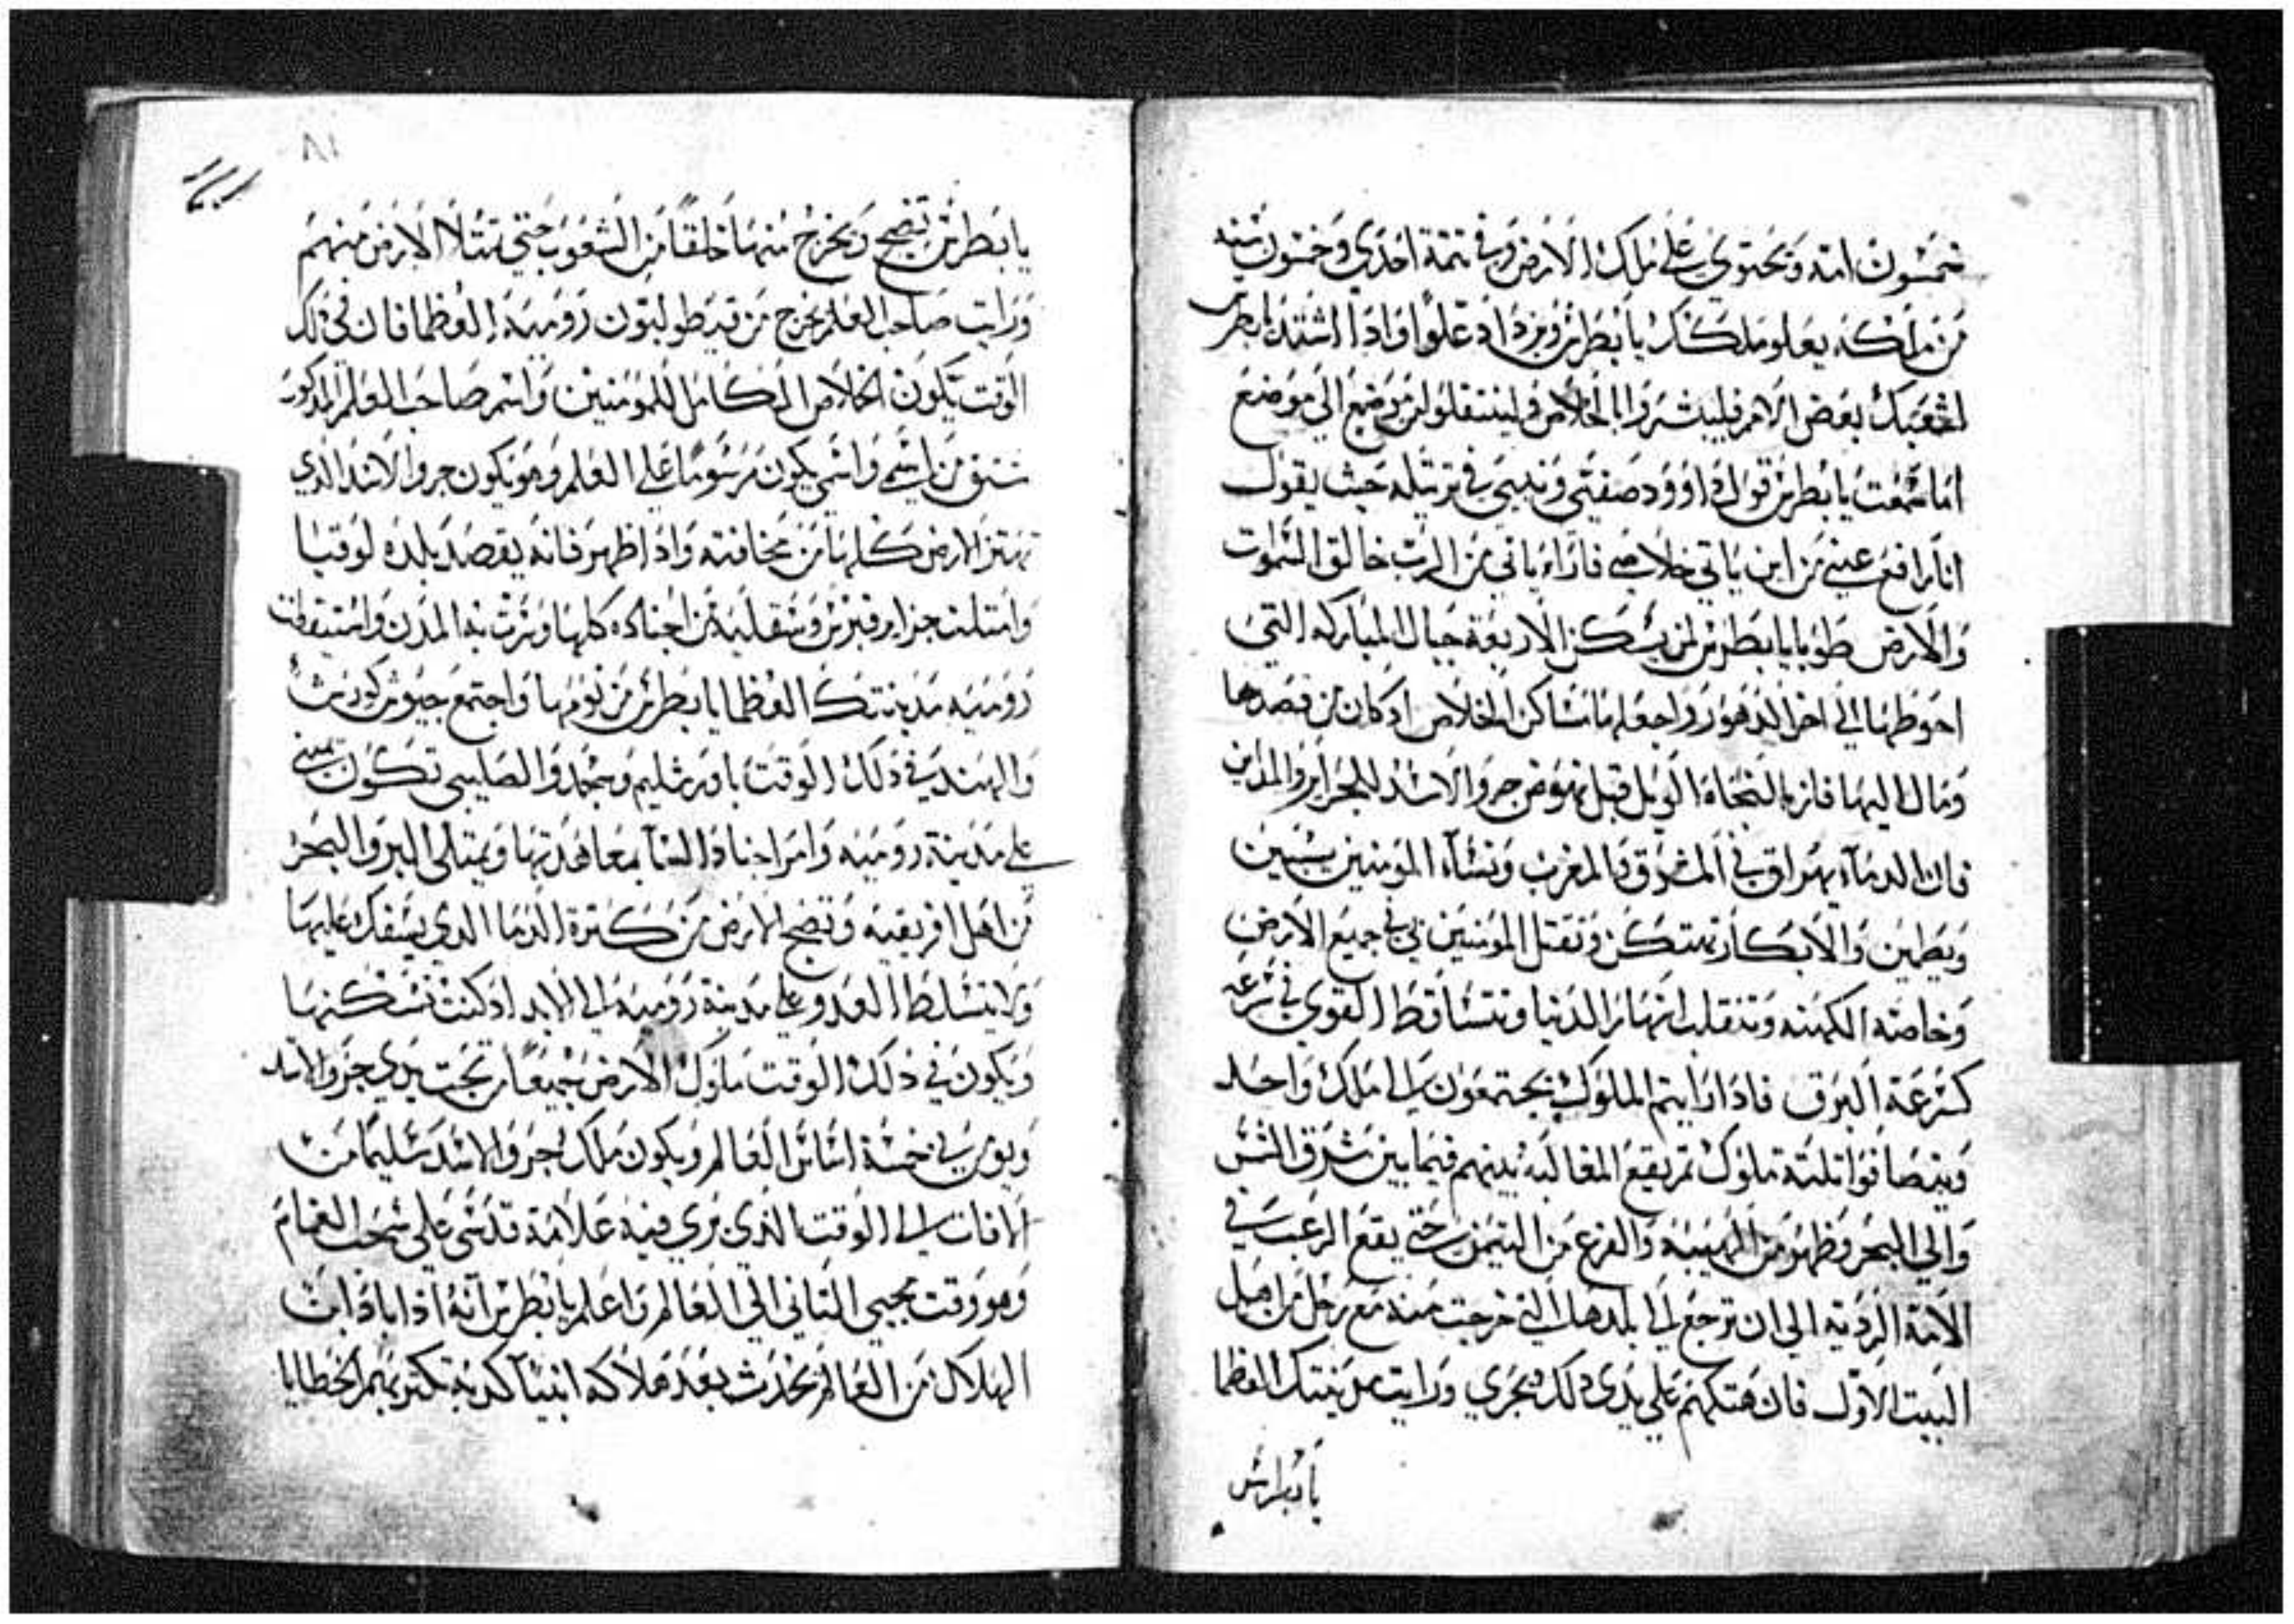 خمسون امه ويحتوي على ملك الارض وفي تتمة احدي وخمسون سنه
من ملكه يعلو ملكك يا بطرس ويزداد علوا واذا اشتد يا بطرس
لشعبك بعض الامر فليبشروا بالخلاص ولينتقلوا من موضع الي موضع
اما سمعت يا بطرس قول داوود صفيي ونبيي في ترتيله حيث يقول
انا رافع عيني من اين ياتي خلاصي فاراه ياتي من الرب خالق السموات
والارض طوبا يا بطرس لمن يسكن الاربعة جبال المباركه التي
احوطها الي اخر الدهور واجعلها مساكن الخلاص اد كان من قصدها
ومال اليها فاز بالنجاه الويل قبل نهوض جرو الاسد للجزاير والمداين
فان الدماء يهراق في المشرق والمغرب ونساء المومنين يسبين
ويطمين والابكار تهتكن وتقتل المومنين في جميع الارض
وخاصته الكهنه وتنقلب انهار الدنيا وتتساقط القوي في سرعه
كسرعة البرق فادا رايتم الملوك يجتمعون الي ملك واحد
ويتصافوا تلته ملوك تم يقع المغالبه بينهم فيما بين مشرق الشمس
والي البحر وظهور من الهيبه والفزع من التيمن حتي يقع الرعب في
الامة الرديه الي ان ترجع الي بلدها التي خرجت منه مع رجل من اهل
البيت الاول فان هتكهم علي يدي دلك يجري ورايت مدينتك العظما
يا بطرس
٨١
يا بطرس تضج ويخرج منها خلقا من الشعوب حتي تمتلا الارض منهم
ورايت صاحب العلم يخرج من قيطوليون روميه العظما فان في دلك
الوقت يكون الخلاص الكامل للمومنين واسم صاحب العلم المدكور
مشتق من اسمي واسمي يكون مرسوما علي العلم وهو يكون جرو الاسد الذي
تهتز الارض كلها من مخافته وادا ظهر فانه يقصد بلده لوقيا
وامتلت جزاير قبرس وسقليه من اجناده كلها ومرت به المدن واستيقظت
روميه مدينتك العظما يا بطرس من نومها واجتمع جيوش كوريش
والهند في ذلك الوقت باورشليم ومجمد والصليبي تكون
علي مدينة روميه وامر اجناد السما بمعاضدتها ويمتلي البر والبحر
من اهل افريقيه وتضج الارض من كترة الدما الدي يسفك عليها
ولا يتسلط العدو علي مدينة روميه الي الابد اد كنت تسكنها
ويكون في ذلك الوقت ملوك الارض جميعا تحت يدي جرو الاسد
ويوي في خمسة اساس العالم ويكون ملك جرو الاسد سليما من
الافات الي الوقت الذي تري فيه علامة قدسي علي سحب الغمام
وهو وقت مجيي التاني الي العالم واعلم يا بطرس انه اذا بادابت
الهلاك من العالم يحدث بعد هلاكه انبيآ كدبه تكتر بهم الخطايا